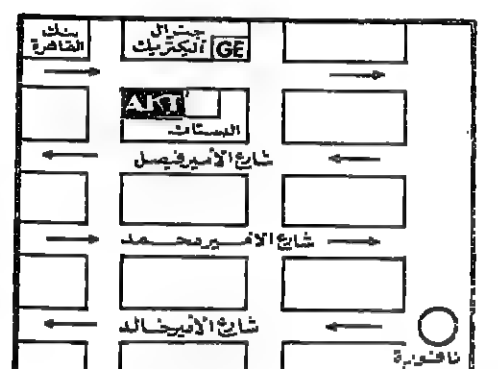 بنك
القاهرة
جنرال
اليكتريك GE
AKT
البستان
شارع الأمير فيصل
شارع الامير محمد
شارع الأمير خالد
نافورة